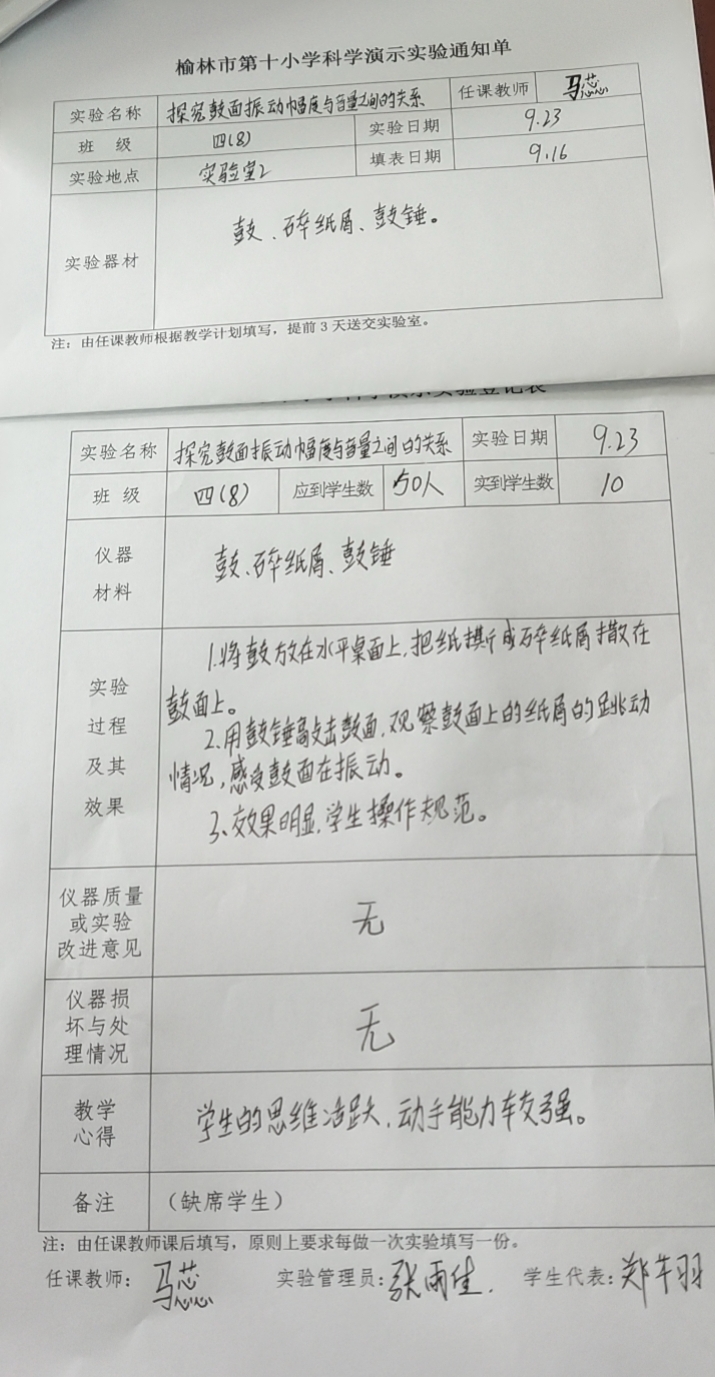 榆林市第十小学科学演示实验通知单
实验名称 探究鼓面振动幅度与音量之间的关系 任课教师 马蕊
班 级 四(8) 实验日期 9.23
实验地点 实验室2 填表日期 9.16
实验器材 鼓、碎纸屑、鼓锤。
注：由任课教师根据教学计划填写，提前3天送交实验室。
实验名称 探究鼓面振动幅度与音量之间的关系 实验日期 9.23
班 级 四(8) 应到学生数 50人 实到学生数 10
仪器
材料
鼓、碎纸屑、鼓锤
实验
过程
及其
效果
1.将鼓放在水平桌面上,把纸撕成碎纸屑撒在
鼓面上。
2.用鼓锤敲击鼓面,观察鼓面上的纸屑的跳动
情况,感受鼓面在振动。
3、效果明显,学生操作规范。
仪器质量
或实验
改进意见
无
仪器损
坏与处
理情况
无
教学
心得
学生的思维活跃,动手能力较强。
备注 （缺席学生）
注：由任课教师课后填写，原则上要求每做一次实验填写一份。
任课教师：马蕊 实验管理员：张雨佳. 学生代表：郑羽